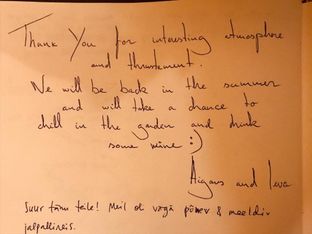 Thank You for interesting atmosphere
and thrustement.
We will be back in the summer
and will take a chance to
chill in the garden and drink
some wine :)
Aigars and Ieva
Suur tänu teile! Meil oli väga põnev & meeldiv
jalpallireis.